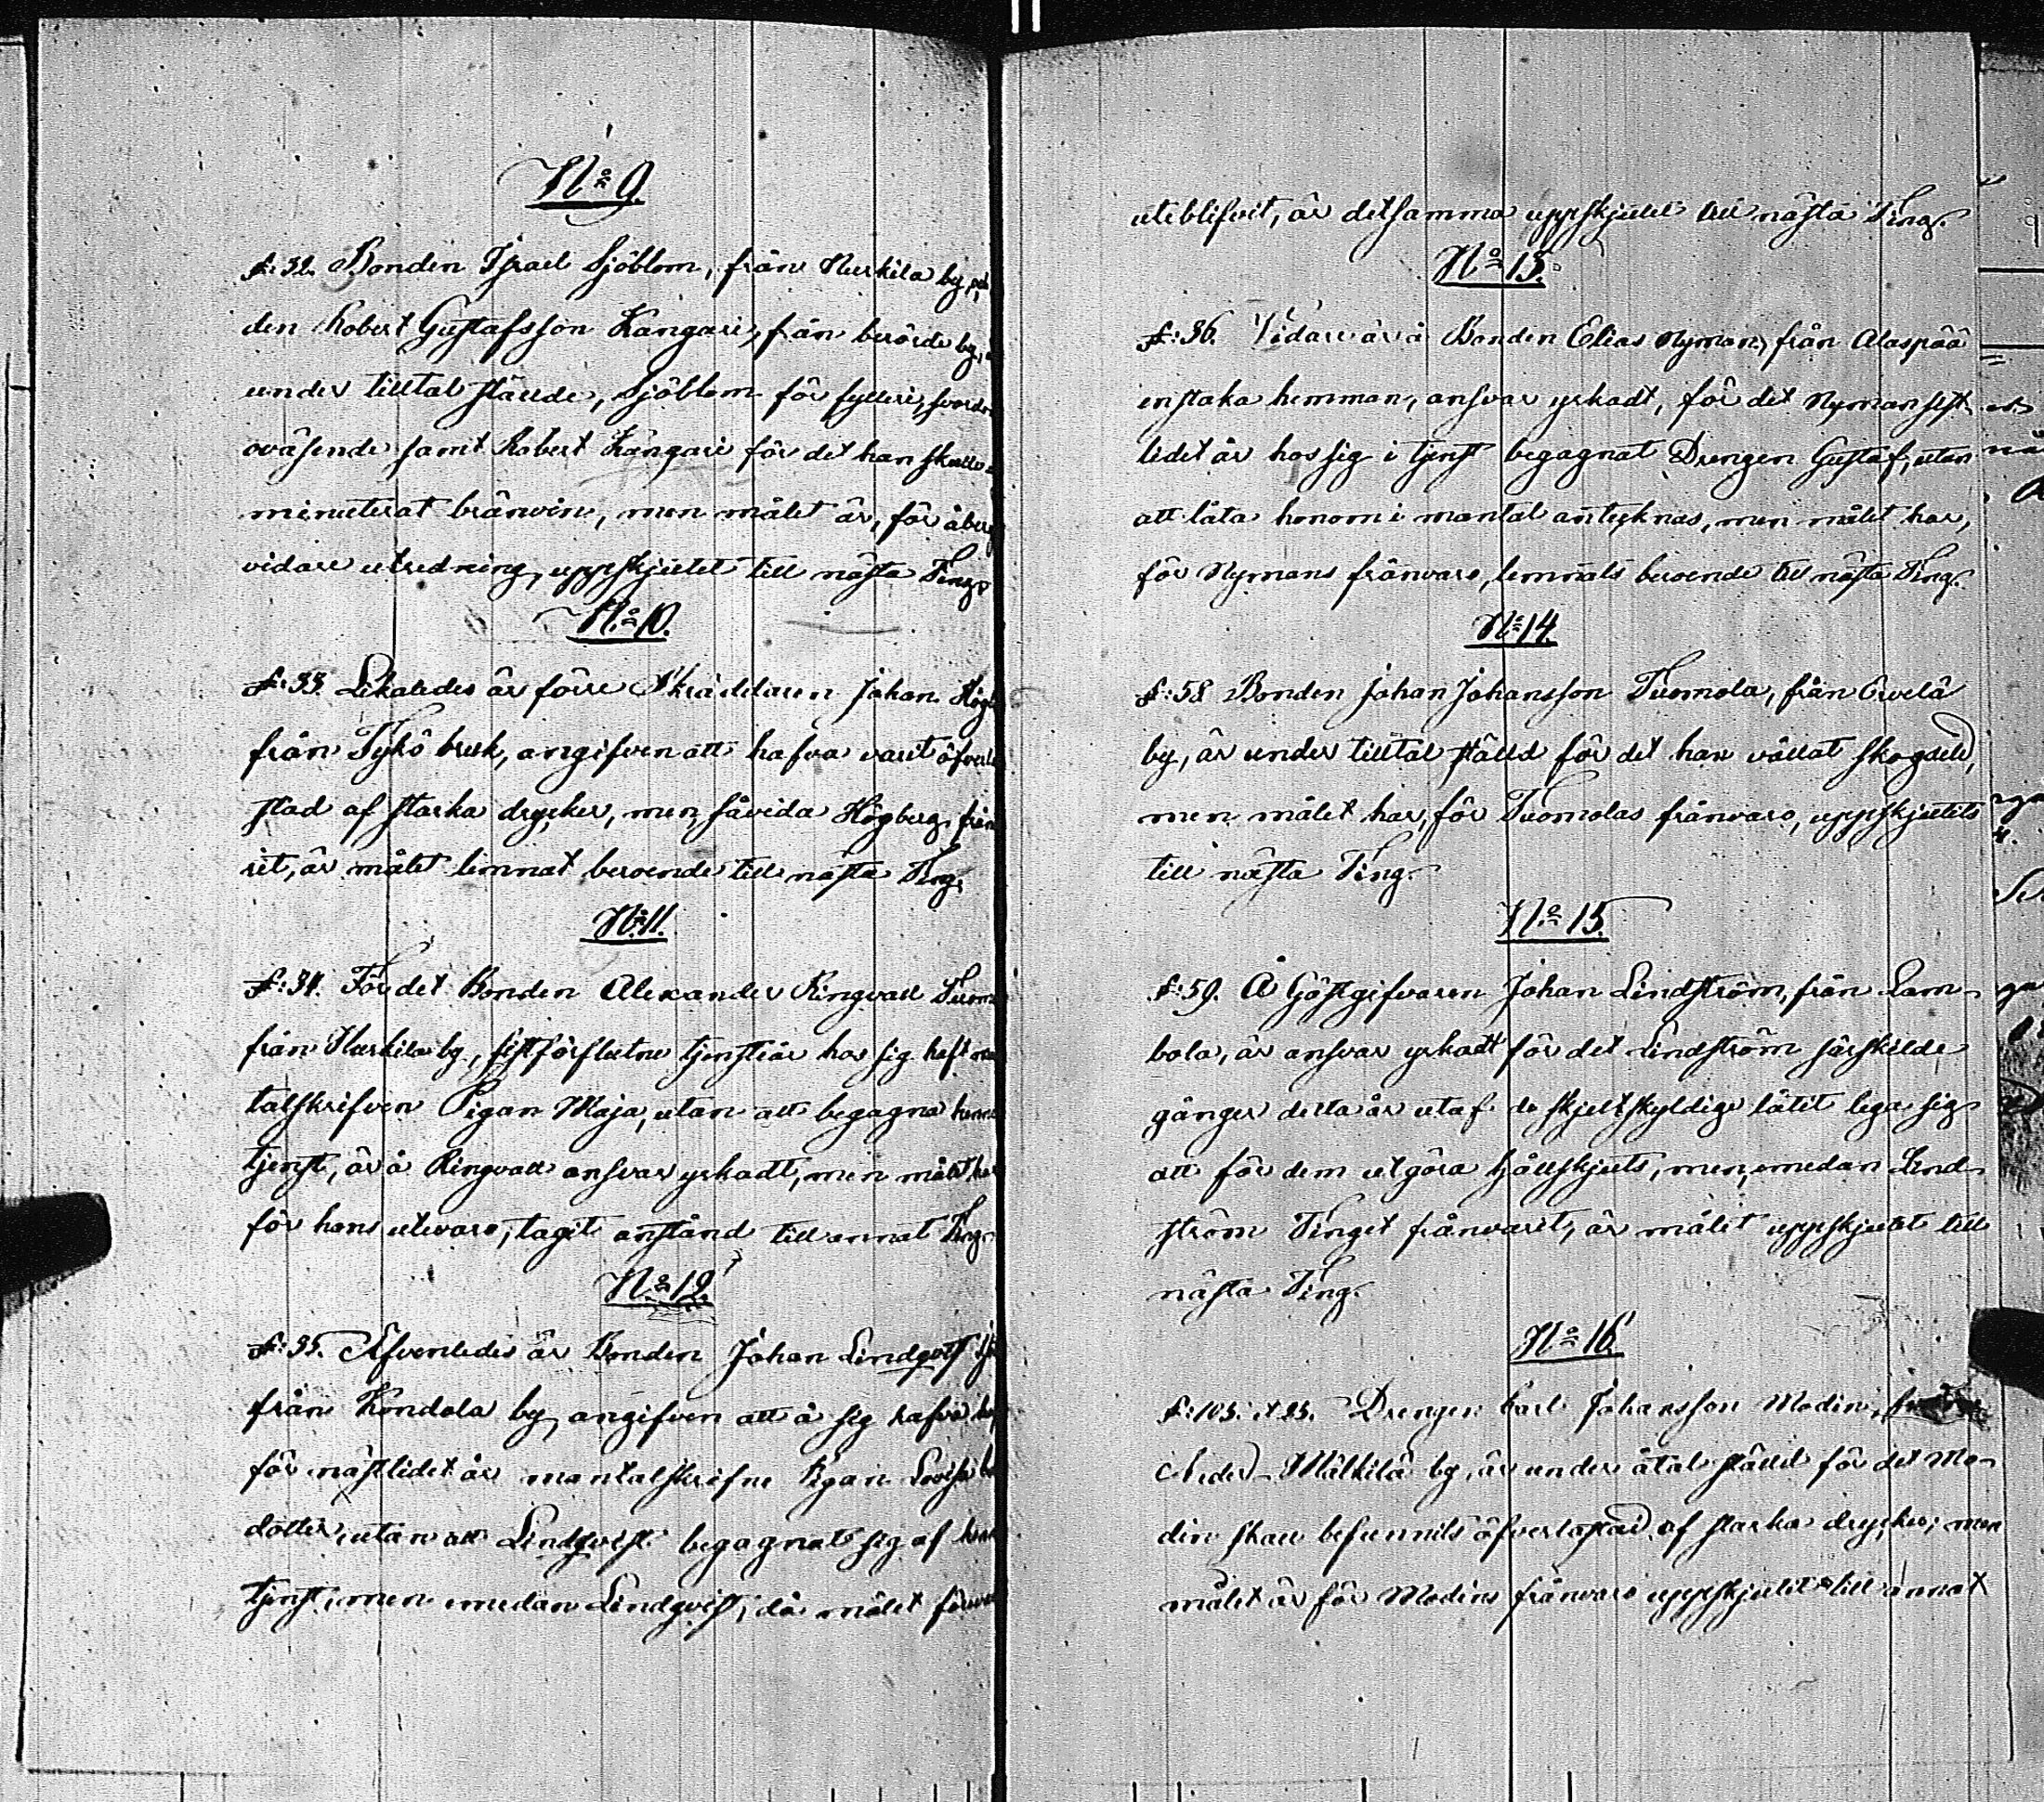 N:o 9.
f: 32. Bonden Israel Sjöblom, från Kurkila by, och
den Robert Gustafsson Kangari, från berörde by,
under tilltal stälde, Sjöblom för fylleri, svordom
oväsende samt Robert Kangari för det han skall
minuterat bränvin, men målet är, för
vidare utredning, uppskjutet till nästa Ting.
N:o 10.
f: 33. Likaledes är förre Skräddaren Johan Högb
från Tykö bruk, angifven att hafva varit öfverla
stad af starka drycker, men, såvida Högberg från
rit, är målet lemnat beroende till nästa Ting.
N:o 11.
f: 34. För det Bonden Alexander Ringvall
från Kurkila by, sistförflutne tjensteår hos sig haft man
talskrifven Pigan Maja, utan att begagna hennes
tjenst, är å Ringvall ansvar yrkadt, men målet har
för hans utevaro, tagit anstånd till annat Ting.
N:o 12.
f: 35. Äfvenledes är Bonden Johan Lindqvist
från Kondola by angifven att å sig hafva
för nästlidet år mantalskrifne Pigan Lovisa
dotter, utan att Lindqvist begagnat sig af hennes
tjenst, men emedan Lindqvist, då målet
uteblifvit, är detsamma uppskjutet till nästa Ting.
N:o 13.
f: 36. Vidare är å Bonden Elias Nyman, från Alaspää
enstaka hemman, ansvar yrkadt, för det Nyman sist-
lidet år hos sig i tjenst begagnat Drengen Gustaf, utan
att låta honom i mantal antecknas, men målet har,
för Nymans frånvaro, lemnats beroende till nästa Ting.
N:o 14.
f: 58. Bonden Johan Johansson Tuomola, från Orvelä
by, är under tilltal ställd för det han vållat skogseld,
men målet har, för Tuomolas frånvaro, uppskjutits
till nästa Ting.
N:o 15.
f: 59. Å Gästgifvaren Johan Lindström, från Lam-
bola, är ansvar yrkadt för det Lindström särskilde
gånger detta år utaf de skjutskyldige låtit lega sig
att för dem utgöra hållskjuts, men, emedan Lind-
ström Tinget frånvarit, är målet uppskjutet till
nästa Ting.
N:o 16.
f: 103. et 25. Drengen Carl Johansson Modin, från
Neder-Mälkilä by, är under åtal stäld för det Mo-
din skall befunnits öfverlastad af starka drycker; men
målet är för Modins frånvaro uppskjutet till annat